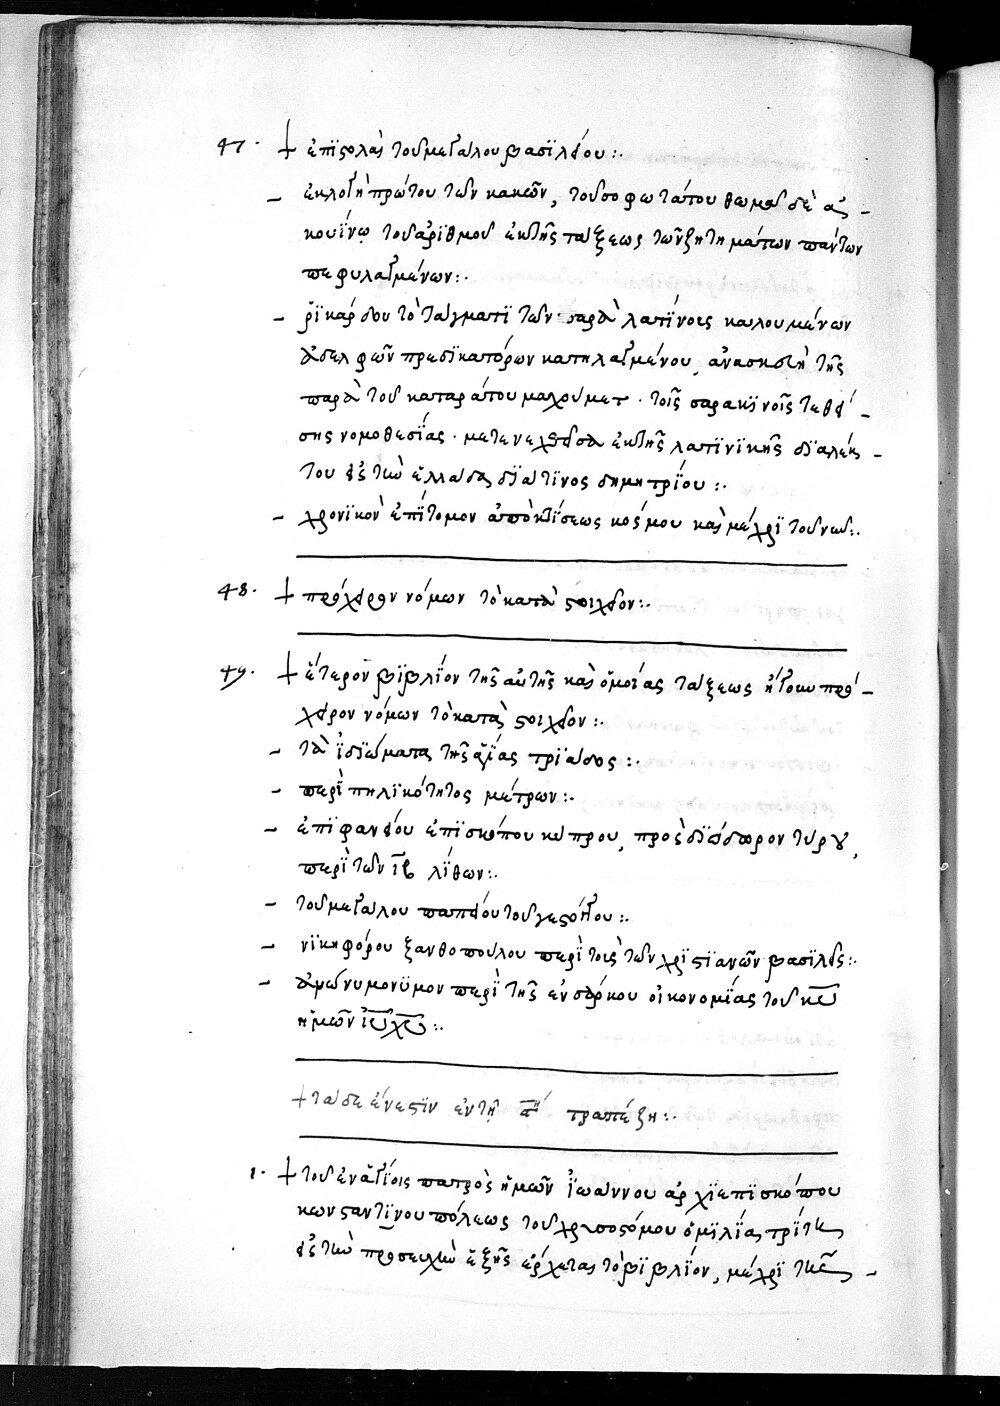 47. + ἐπιστολαὶ τοῦ μεγάλου βασιλείου :·
– ἐκλογὴ πρώτου τῶν κακῶν, τοῦ σοφωτάτου θωμᾶ δὲ ἀ –
κουΐνῳ τοῦ ἀριθμοῦ ἐκ τῆς τάξεως τῶν ζητημάτων πάντων
πεφυλαγμένων :·
– ῥικάρδου τὸ τάγματι τῶν παρὰ λατίνοις καλουμένων
ἀδελφῶν πρεδικατόρων κατηλαγμένου, ἀνασκευὴ τῆς
παρὰ τοῦ καταράτου μαχούμετ · τοῖς σαρακινοῖς τεθεί –
σης νομοθεσίας · μετενεχθεῖσα ἐκ τῆς λατινικῆς διαλέκ –
του εἰς τὴν ἑλλάδα διά τινος δημητρίου :·
– χρονικὸν ἐπίτομον ἀπὸ κτίσεως κόσμου καὶ μέχρι τοῦ νῦν :·
48. + πρόχειρον νόμων τὸ κατὰ στοιχεῖον :·
49. + ἕτερον βιβλίον τῆς αὐτῆς καὶ ὁμοίας τάξεως ἤγουν πρό –
χειρον νόμων τὸ κατὰ στοιχεῖον :·
– τὰ ἰδιώματα τῆς ἁγίας τριάδος :·
– περὶ πηλικότητος μέτρων :·
– ἐπιφανείου ἐπισκόπου κύπρου, πρὸς διόδωρον τύρου,
περὶ τῶν ιβ λίθων :·
– τοῦ μεγάλου παπείου τοῦ γεσότου :·
– νικηφόρου ξανθοπούλου περὶ τοῖς τῶν χριστιανῶν βασιλεῖς :·
– ἀνώνυμον ὕμον περὶ τῆς ἐνσάρκου οἰκονομίας τοῦ κυ
ἡμῶν ιυ χυ :·
+ τάδε ἔνεστιν ἐν τῇ αῃ τραπέζῃ :·
1. + τοῦ ἐν ἁγίοις πατρὸς ἡμῶν ἰωάννου ἀρχιεπισκόπου
κωνσταντινουπόλεως τοῦ χρυσοστόμου ὁμιλία τρίτη
εἰς τὴν προσευχὴν ἑξῆς ἔρχεται τὸ βιβλίον, μέχρι τῆς –